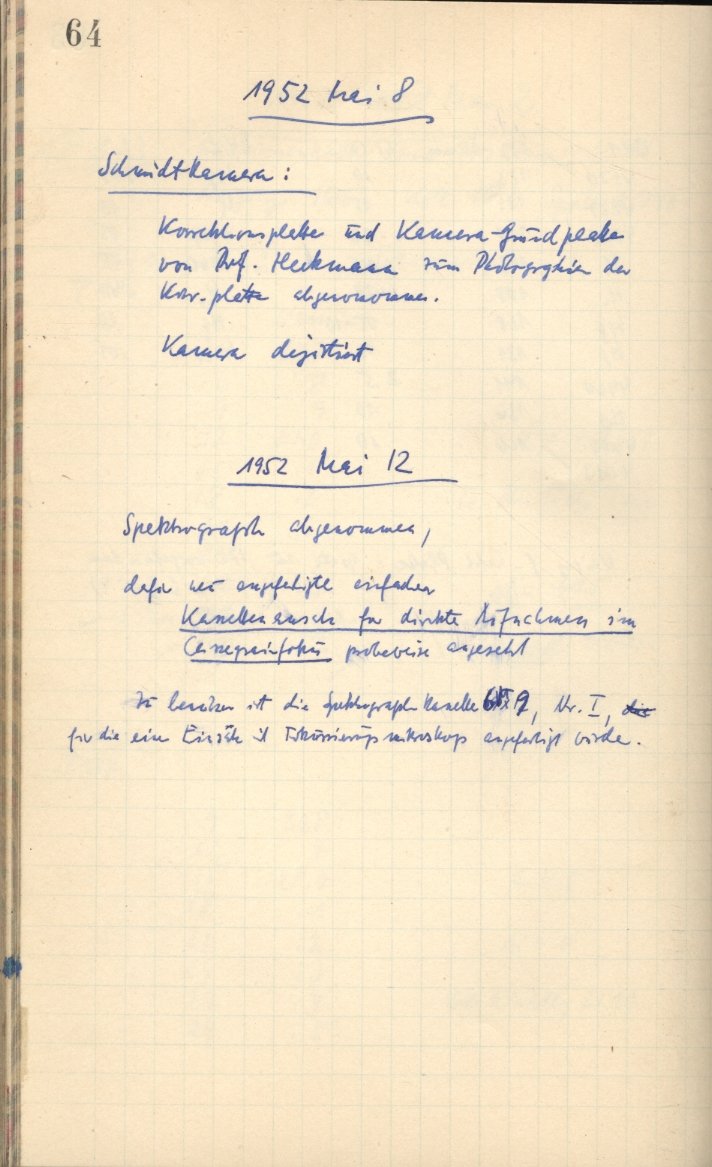 64
1952 Mai 8
Schmidtkamera:
Korrektionsplatte und Kamera-Grundplatte
von Prof. Heckmann zum Photographieren der
Korr.-platte abgenommen.
Kamera dejustiert
1952 Mai 12
Spektrograph abgenommen,
dafür neu angefertigte einfache
Kassetten für direkte Aufnahmen im
Cassegrainfokus probeweise angesetzt
Zu benützen ist die Spektrograph Kassette 9, Nr. I, die
für die ein Einsatz mit Fokussierungsmikroskop angefertigt wurde.